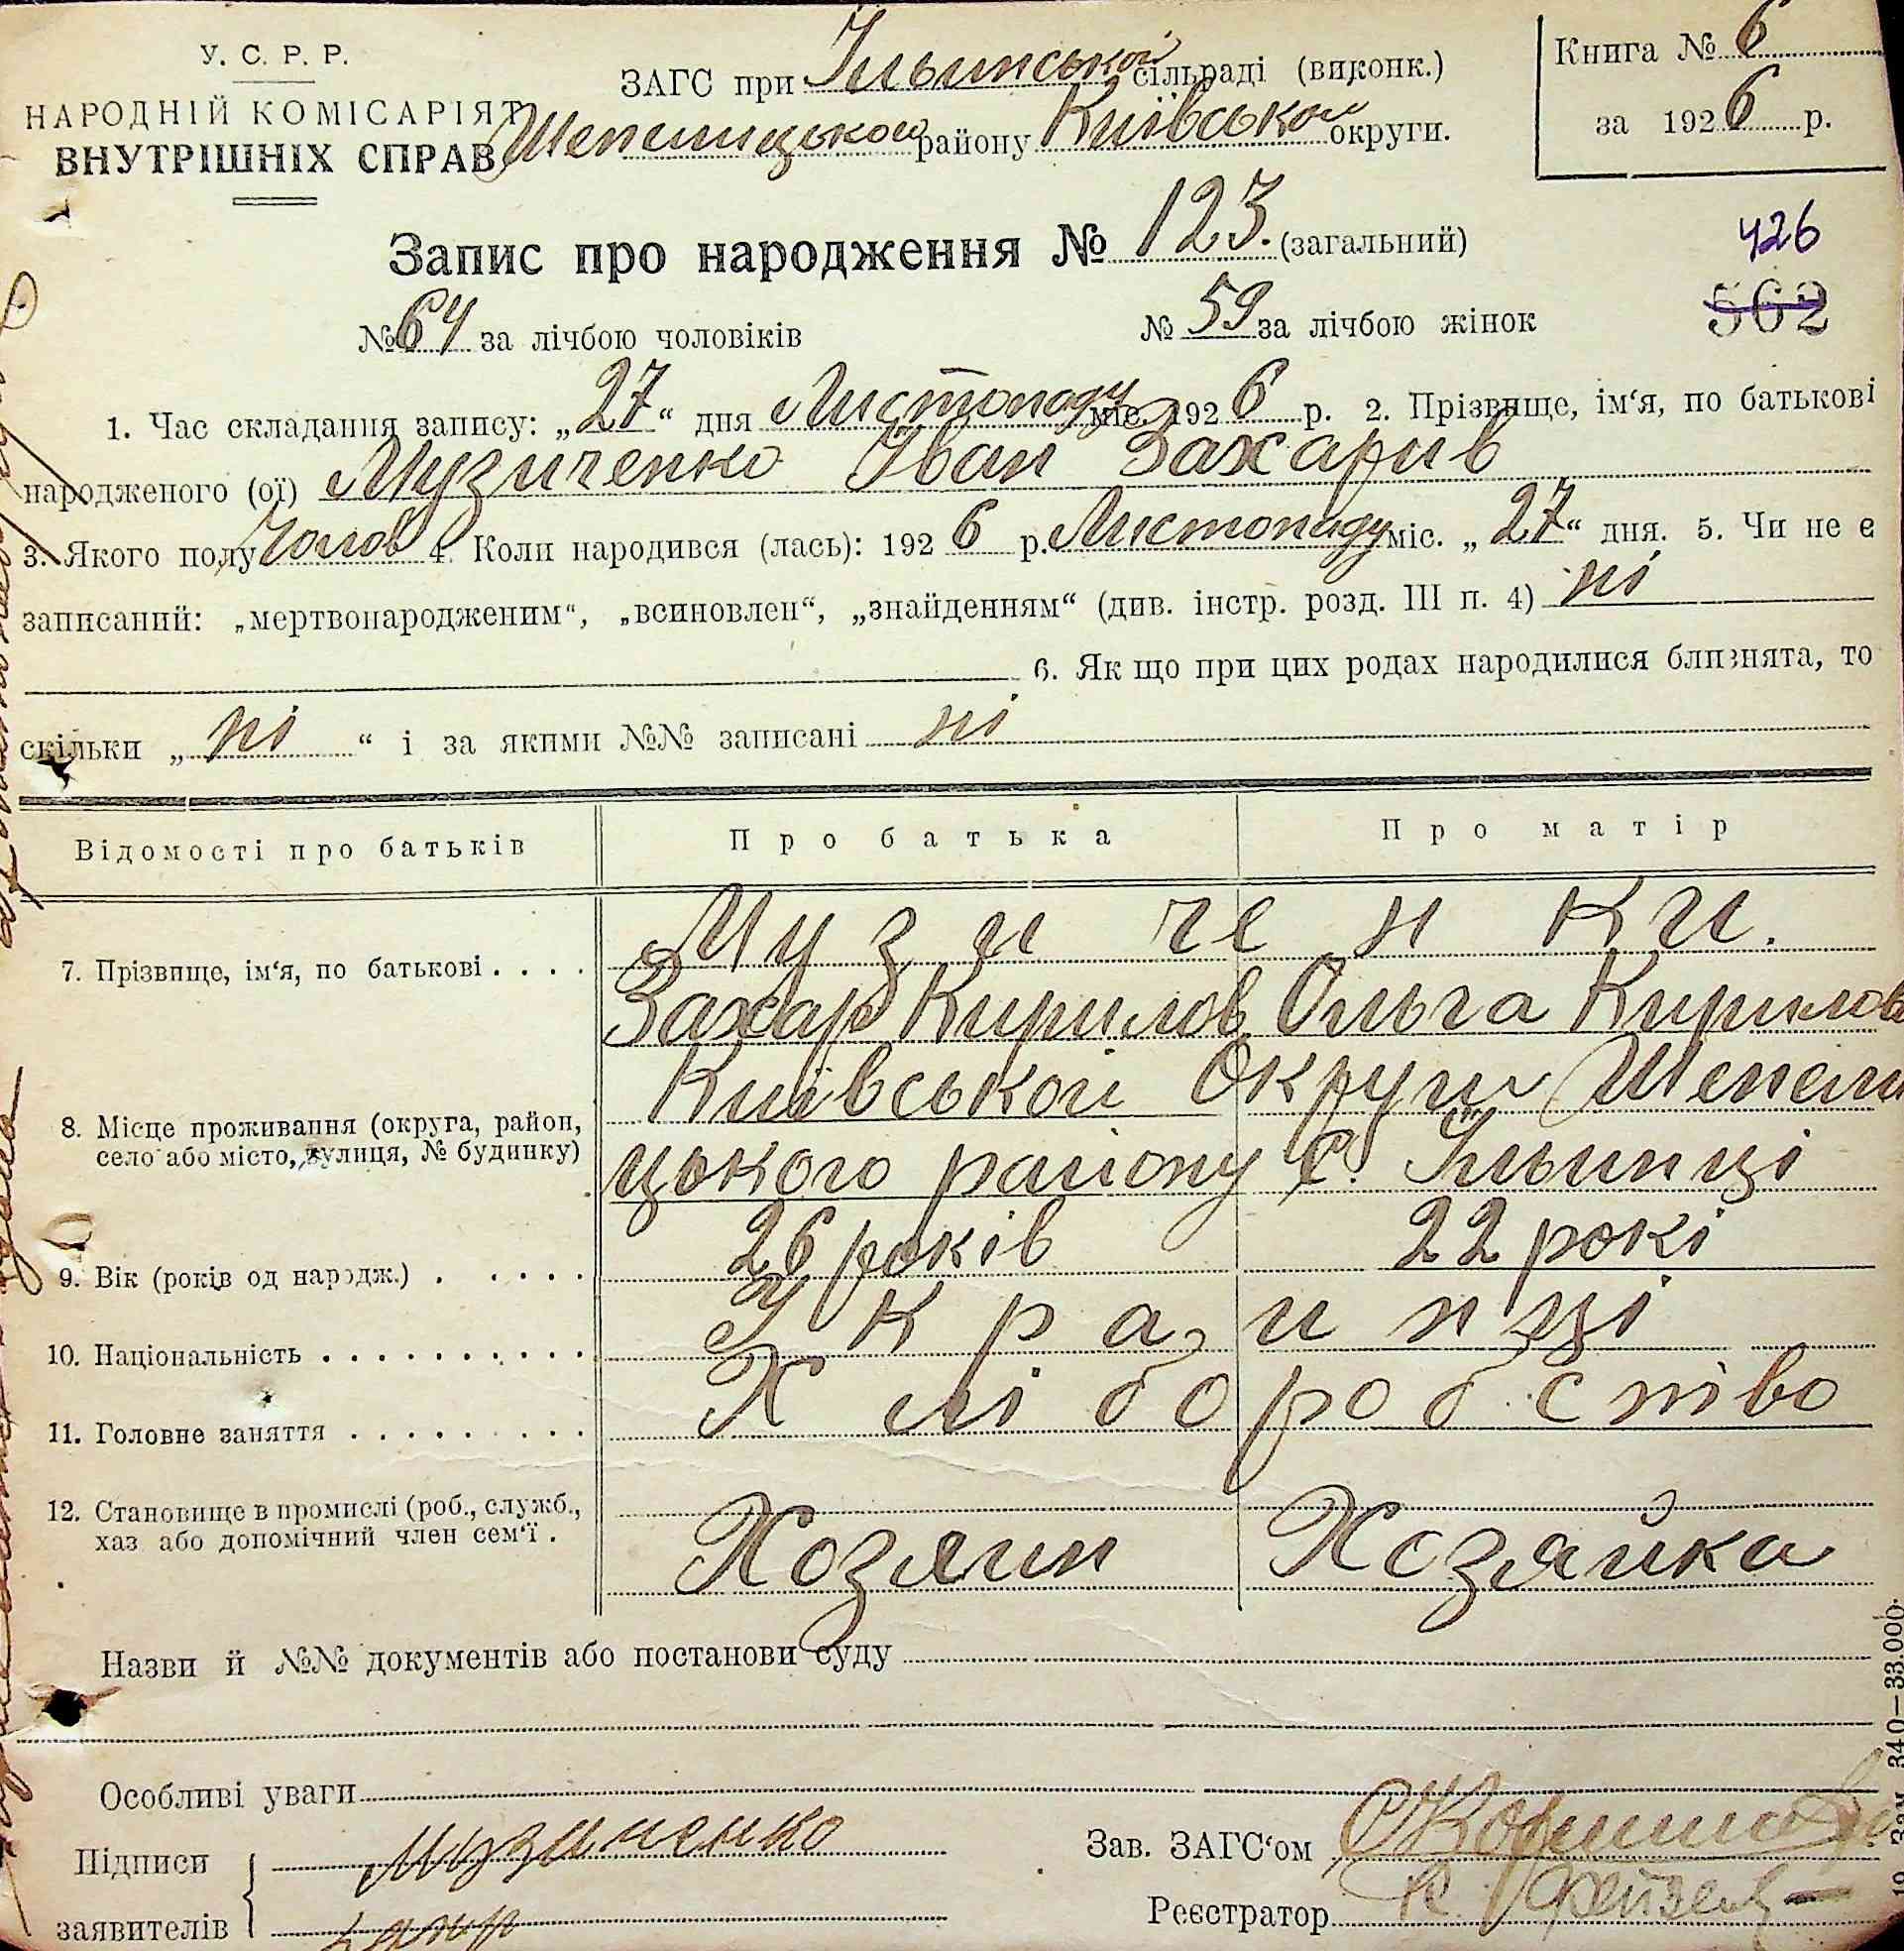 У. С. Р. Р.
НАРОДНІЙ КОМІСАРІЯТ
ВНУТРІШНІХ СПРАВ
ЗАГС при Ільинській сільраді (виконк.)
Шепелицького району Київської округи.
Книга № 6
за 1926 р.
Запис про народження № 123. (загальний)
426
562
№ 64 за лічбою чоловіків № 59 за лічбою жінок
1. Час складання запису: „27“ дня Листопаду міс. 1926 р. 2. Прізвище, ім‘я, по батькові
народженого (ої) Музиченко Іван Захарив
3. Якого полу Чолов 4. Коли народився (лась): 1926 р. Листопаду міс. „27“ дня. 5. Чи не є
записаний: „мертвонародженим“, „всиновлен“, „знайденням“ (див. інстр. розд. III п. 4) ні
6. Як що при цих родах народилися близнята, то
скільки „ні“ і за якими №№ записані ні
Відомості про батьків Про батька Про матір
7. Прізвище, ім‘я, по батькові . . . .
Музиченки.
Захар Кирилов Ольга Кирилов
8. Місце проживання (округа, район,
село або місто, вулиця, № будинку)
Київської Округи Шепели
цького району с. Ільинці
9. Вік (років од народж.) . . . . . 26 років 22 рокі
10. Національність . . . . . . . . . . Украинці
11. Головне заняття . . . . . . . . . Хліборобство
12. Становище в промислі (роб., служб.,
хаз або допомічний член сем‘ї .
Хозяин Хозяйка
Назви й №№ документів або постанови суду
Особливі уваги
Підписи
заявителів
Музиченко
Зав. ЗАГС‘ом
Реєстратор
Зам. 340—33.000.